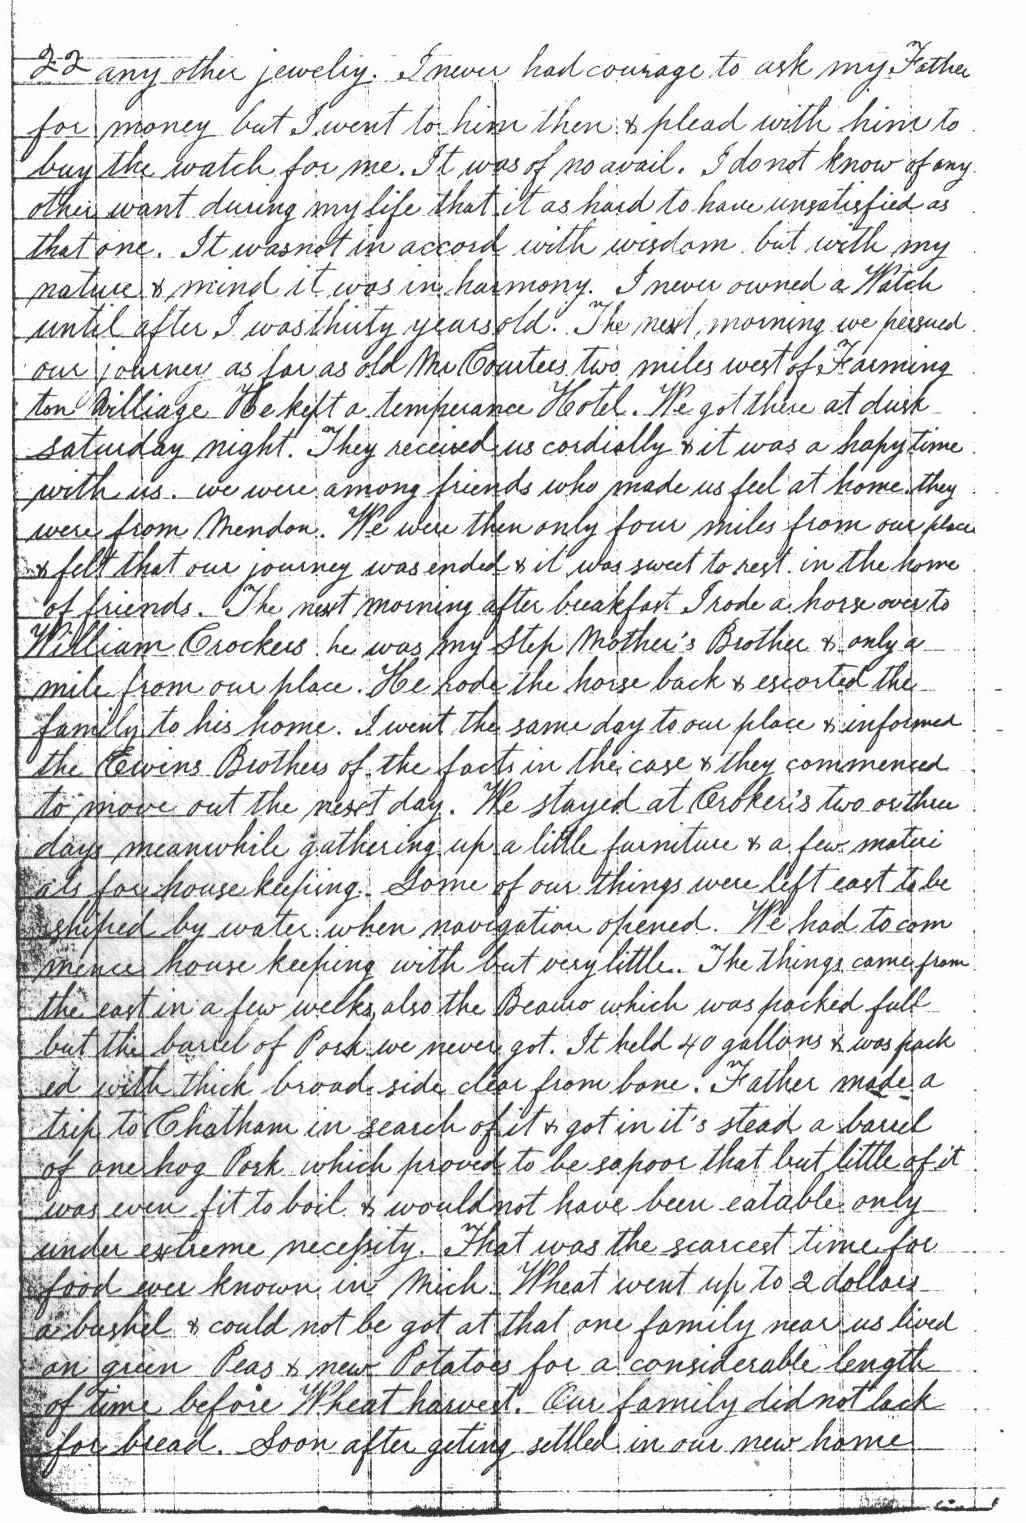 22 any other jewelry. I never had courage to ask my Father
for money but I went to him then & plead with him to
buy the watch for me. It was of no avail. I do not know of any
other want during my life that it as hard to have unsatisfied as
that one. It was not in accord with wisdom but with my
nature & mind it was in harmony. I never owned a Watch
until after I was thirty years old. The next morning we persued
our journey as far as old Mr Courters two miles west of Farming
ton Villiage He kept a temperance Hotel. We got there at dusk
saturday night. They received us cordially & it was a hapy time
with us. we were among friends who made us feel at home. they
were from Mendon. We were then only four miles from our place
& felt that our journey was ended & it was sweet to rest in the home
of friends. The next morning after breakfast I rode a horse over to
William Crockers he was my Step Mother's Brother & only a
mile from our place. He rode the horse back & escorted the
family to his home. I went the same day to our place & informed
the Ewins Brothers of the facts in the case & they commenced
to move out the next day. We stayed at Croker's two or three
days meanwhile gathering up a little furniture & a few materi
als for house keeping. Some of our things were left east to be
shiped by water when navigation opened. We had to com
mence house keeping with but very little. The things came from
the east in a few weeks also the Beauro which was packed full
but the barrel of Pork we never got. It held 40 gallons & was pack
ed with thick broad side clear from bone. Father made a
trip to Chatham in search of it & got in it's stead a barrel
of one hog Pork which proved to be so poor that but little of it
was even fit to boil & would not have been eatable only
under extreme necessity. That was the scarcest time for
food ever known in Mich Wheat went up to 2 dollars
a bushel & could not be got at that one family near us lived
on green Peas & new Potatoes for a considerable length
of time before Wheat harvest. Our family did not lack
for bread. Soon after geting settled in our new home